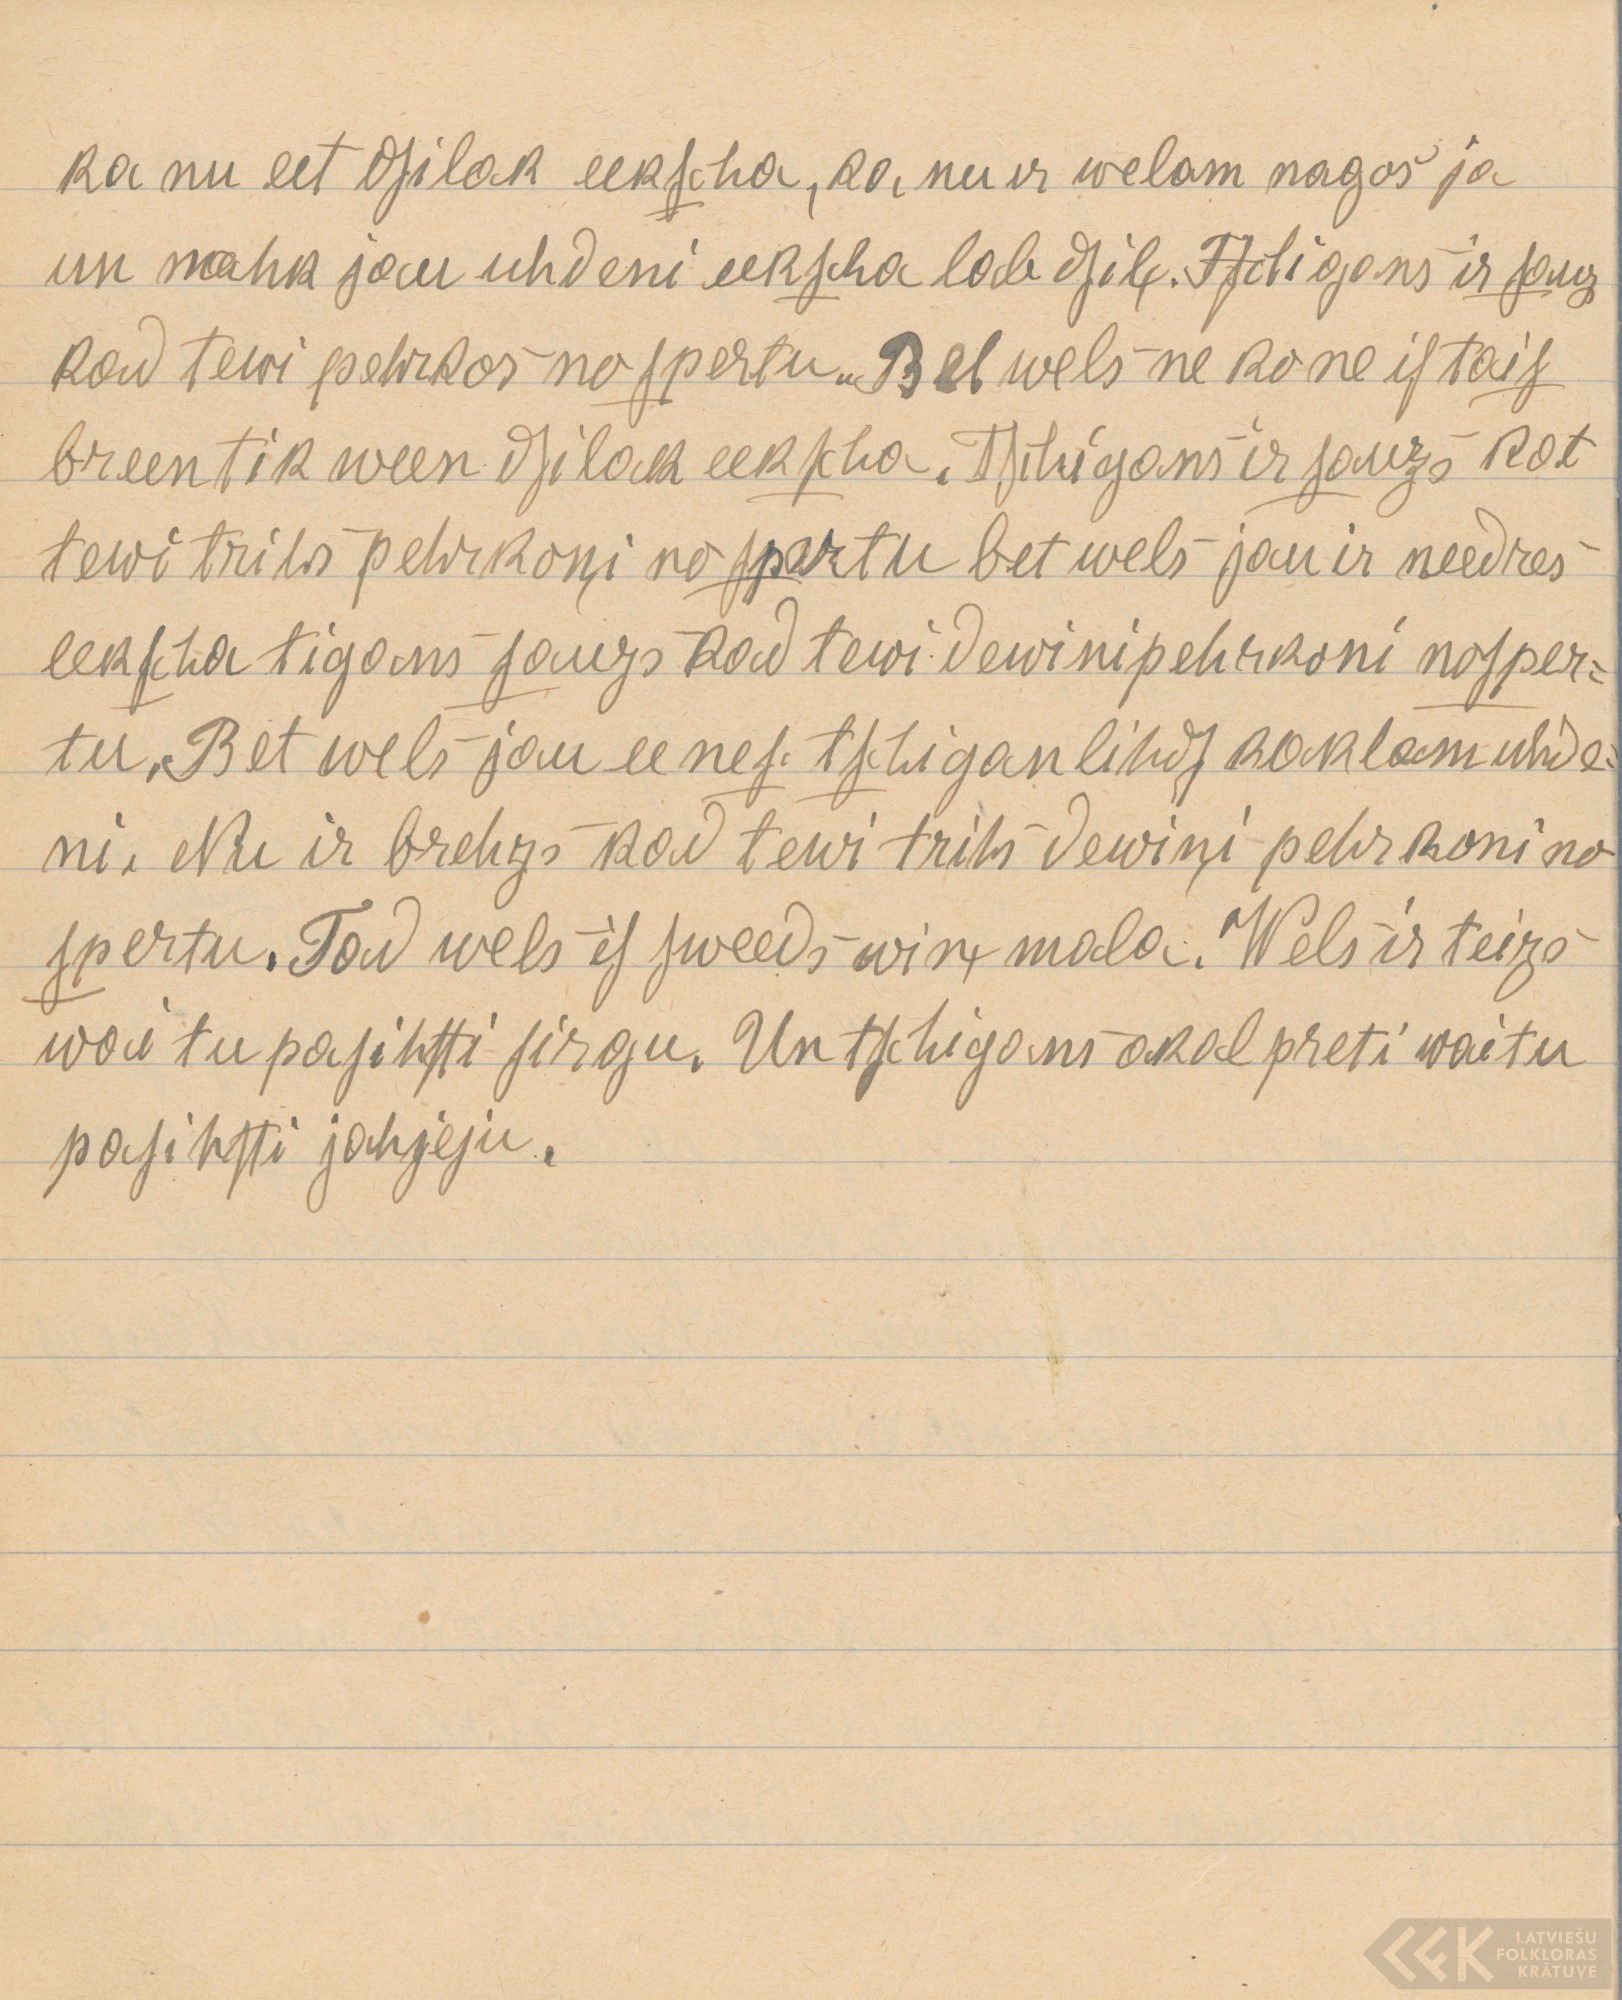 ka nu eet dſilak eekſcha, ka nu ir welam nagos ja
un nahk jau uhdeni eekſcha lab dſiļ. Tſchigans ir ſauz
kad tewi pehrkos no ſpertu. Bet wels ne ko ne iſtaiſ
breen tik ween dſilak eekſcha. Tſchigans ir ſauzs kat
tewi trihs pehrkoņi no ſpertu bet wels jau ir needres
eekſcha tigans ſauzs kad tewi dewini pehrkoni noſper=
tu. Bet wels jau ee neſ tſchigan lihdſ kaklam uhde=
ni. Nu ir brehzs kad tewi trihs dewiņi pehrkoni no
ſpertu. Tad wels iſ ſweeds wiņ mala. Wels ir teizs
wai tu paſihſti ſirgu. Un tſchigans akal preti wai tu
paſihſti jahjeju.
LATVIEŠU
FOLKLORAS
KRĀTUVE